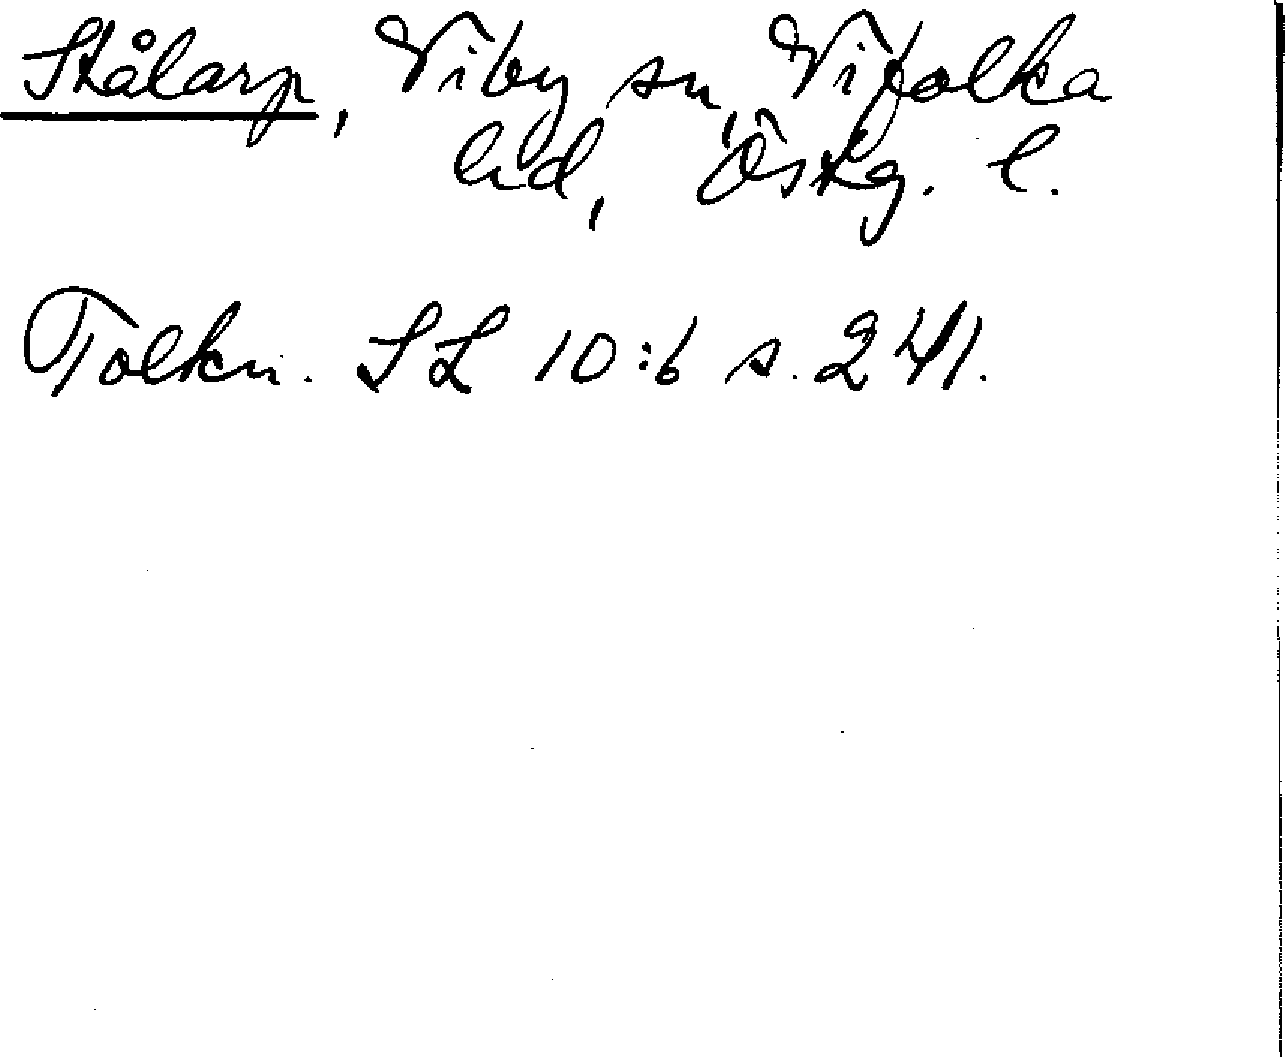 Stålarp, Viby sn, Vifolka
hd, Östg. l.
Tolkn. SL 10:6 s. 241.